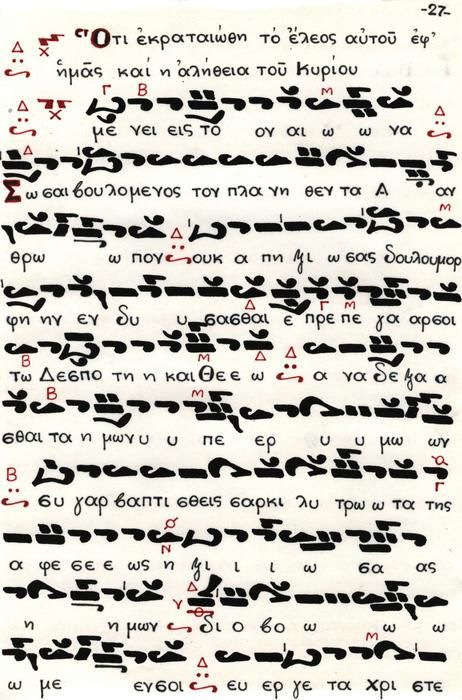 -27-
Ὅτι ἐκραταιώθη τό ἔλεος αὐτοῦ ἐφ'
ἡμᾶς καί η ἀλήθεια τοῦ Κυρίου
με νει εις το ον αι ω ω να
Σ ω σαι βου λο με νος τον πλα νη θεν τα Α αν
θρω ω πον ουκ α πη ξι ω σας δουλου μορ
φη ην εν δυ υ σασθαι ε πρε πε γα αρ σοι
τω Δεσπο τη η και Θε ε ω α να δε ξα α
σθαι τα η μων υ υ πε ερ υ υ μω ων
συ γαρ βαπτι σθεις σαρκι λυ τρω ω τα της
α φε σε ε ως η ξι ι ι ω σα ας
η η μων δι ο βο ω ω ω
ω με εν σοι ευ ερ γε τα Χρι στε